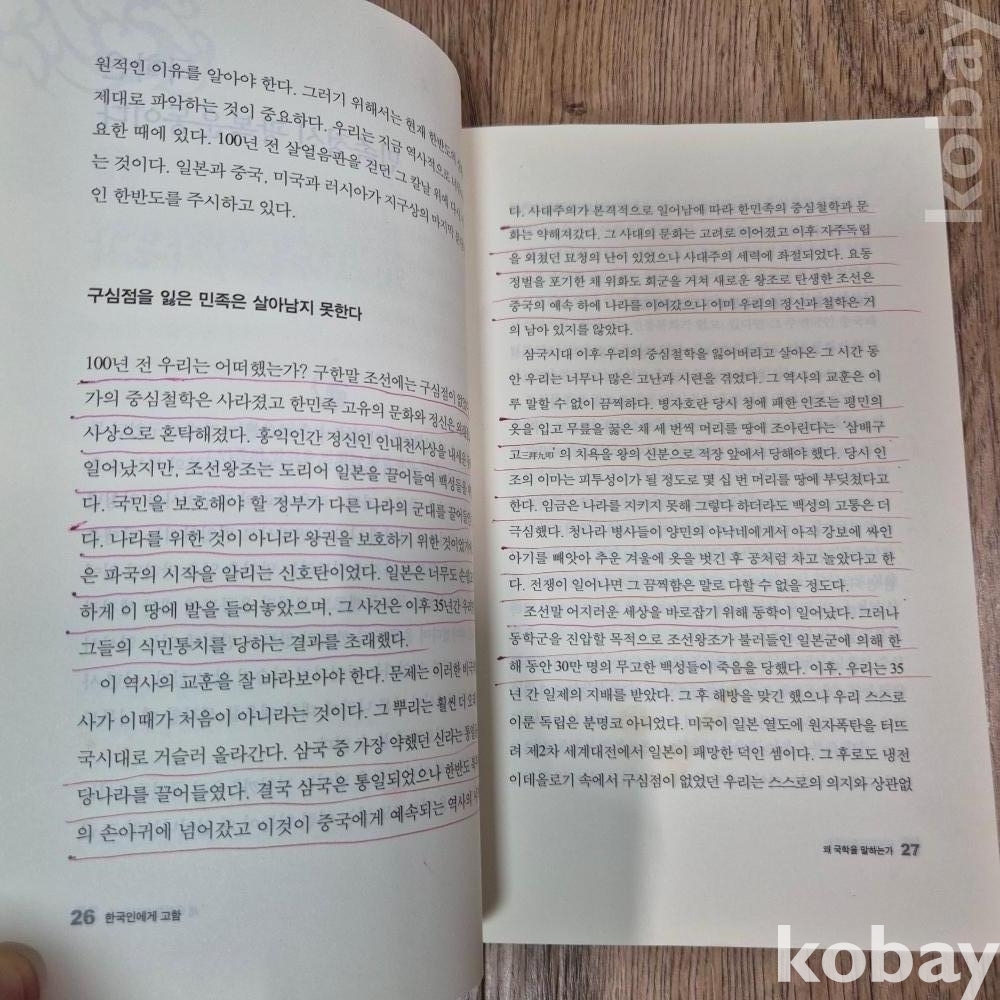 원적인 이유를 알아야 한다. 그러기 위해서는 현재 한반도의
제대로 파악하는 것이 중요하다. 우리는 지금 역사적으로
요한 때에 있다. 100년 전 살얼음판을 걷던 그 칼날 위에
는 것이다. 일본과 중국, 미국과 러시아가 지구상의 마지막
인 한반도를 주시하고 있다.
구심점을 잃은 민족은 살아남지 못한다
100년 전 우리는 어떠했는가? 구한말 조선에는 구심점이
가의 중심철학은 사라졌고 한민족 고유의 문화와 정신은
사상으로 혼탁해졌다. 홍익인간 정신인 인내천사상을
일어났지만, 조선왕조는 도리어 일본을 끌어들여 백성들을
다. 국민을 보호해야 할 정부가 다른 나라의 군대를
다. 나라를 위한 것이 아니라 왕권을 보호하기 위한
은 파국의 시작을 알리는 신호탄이었다. 일본은 너무도
하게 이 땅에 발을 들여놓았으며, 그 사건은 이후 35년간
그들의 식민통치를 당하는 결과를 초래했다.
이 역사의 교훈을 잘 바라보아야 한다. 문제는 이러한
사가 이때가 처음이 아니라는 것이다. 그 뿌리는 훨씬 더
국시대로 거슬러 올라간다. 삼국 중 가장 약했던 신라는
당나라를 끌어들였다. 결국 삼국은 통일되었으나 한반도
의 손아귀에 넘어갔고 이것이 중국에게 예속되는 역사의
26 한국인에게 고함
다. 사대주의가 본격적으로 일어남에 따라 한민족의 중심철학과 문
화는 약해져갔다. 그 사대의 문화는 고려로 이어졌고 이후 자주독립
을 외쳤던 묘청의 난이 있었으나 사대주의 세력에 좌절되었다. 요동
정벌을 포기한 채 위화도 회군을 거쳐 새로운 왕조로 탄생한 조선은
중국의 예속 하에 나라를 이어갔으나 이미 우리의 정신과 철학은 거
의 남아 있지를 않았다.
삼국시대 이후 우리의 중심철학을 잃어버리고 살아온 그 시간 동
안 우리는 너무나 많은 고난과 시련을 겪었다. 그 역사의 교훈은 이
루 말할 수 없이 끔찍하다. 병자호란 당시 청에 패한 인조는 평민의
옷을 입고 무릎을 꿇은 채 세 번씩 머리를 땅에 조아린다는 '삼배구
고三拜九叩'의 치욕을 왕의 신분으로 적장 앞에서 당해야 했다. 당시 인
조의 이마는 피투성이가 될 정도로 몇 십 번 머리를 땅에 부딪쳤다고
한다. 임금은 나라를 지키지 못해 그렇다 하더라도 백성의 고통은 더
극심했다. 청나라 병사들이 양민의 아낙네에게서 아직 강보에 싸인
아기를 빼앗아 추운 겨울에 옷을 벗긴 후 공처럼 차고 놀았다고 한
다. 전쟁이 일어나면 그 끔찍함은 말로 다할 수 없을 정도다.
조선말 어지러운 세상을 바로잡기 위해 동학이 일어났다. 그러나
동학군을 진압할 목적으로 조선왕조가 불러들인 일본군에 의해 한
해 동안 30만 명의 무고한 백성들이 죽음을 당했다. 이후, 우리는 35
년 간 일제의 지배를 받았다. 그 후 해방을 맞긴 했으나 우리 스스로
이룬 독립은 분명코 아니었다. 미국이 일본 열도에 원자폭탄을 터뜨
려 제2차 세계대전에서 일본이 패망한 덕인 셈이다. 그 후로도 냉전
이데올로기 속에서 구심점이 없었던 우리는 스스로의 의지와 상관없
왜 국학을 말하는가 27
kobay
kobay